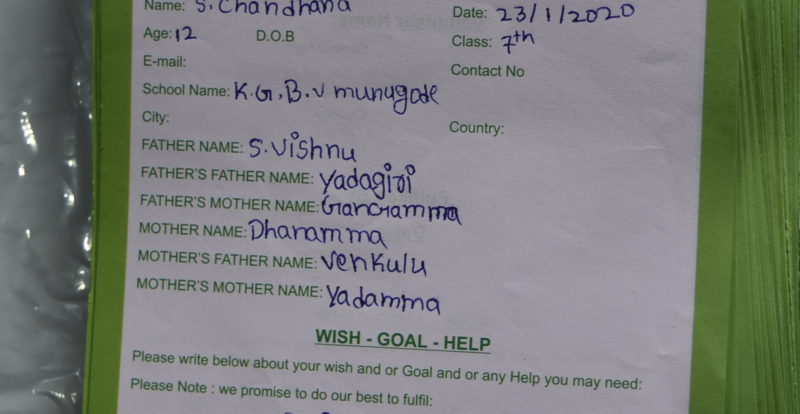 Name: S. Chandhana Date: 23/1/2020
Age: 12 D.O.B Class: 7th
E-mail: Contact No
School Name: K.G.B.V munugode
City: Country:
FATHER NAME: S. Vishnu
FATHER'S FATHER NAME: Yadagiri
FATHER'S MOTHER NAME: Gangamma
MOTHER NAME: Dhanamma
MOTHER'S FATHER NAME: Venkulu
MOTHER'S MOTHER NAME: Yadamma
WISH - GOAL - HELP
Please write below about your wish and or Goal and or any Help you may need:
Please Note : we promise to do our best to fulfil: